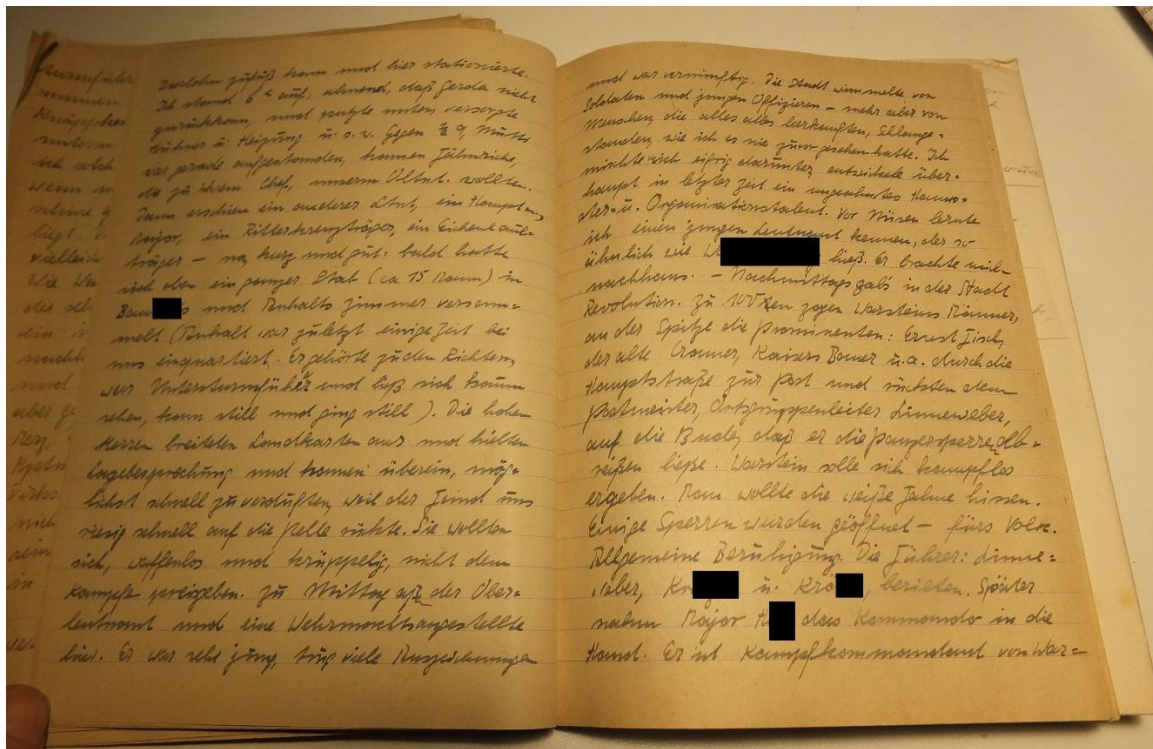 Iserlohn zufuß kam und hier stationierte.
Ich stand 6 auf, ahnend, daß Gerda nicht
zurückkam, und putzte unten, versorgte
Hühner u. Heizung u. s. w. Gegen ½ 9, Mutti
war gerade aufgestanden, kamen Fähnriche,
die zu ihrem Chef, unserm Obltnt. wollten.
Dann erschien ein anderer Ltnt, ein Hauptm,
Major, ein Ritterkreuzträger, ein Eichenlaub-
träger – na, kurz und gut: bald hatte
sich oben ein ganzer Stab (ca 15 Mann) in
und Anhalts Zimmer versam=
melt (Anhalt war zuletzt einige Zeit bei
uns einquartiert. Er gehörte zu den Richtern,
war Untersturmführer und ließ sich kaum
sehen, kam still und ging still). Die hohen
Herren breiteten Landkarten aus und hielten
Lagebesprechung und kamen überein, mög=
lichst schnell zu verduften, weil der Feind uns
riesig schnell auf die Pelle rückte. Sie wollten
sich, waffenlos und krüppelig, nicht dem
Kampfe preisgeben. Zu Mittag aß der Ober=
leutnant und eine Wehrmachtsangestellte
hier. Er war sehr jung, trug viele Auszeichnungen
und war vernünftig. Die Stadt wimmelte von
Soldaten und jungen Offizieren – mehr aber von
Menschen, die alles alles leerkauften, Schlange=
standen, wie ich es nie zuvor gesehen hatte. Ich
mischte mich eifrig darunter, entwickele über=
haupt in letzter Zeit ein ungeahntes Hams=
ter- u. Organisationstalent. Vor Müsen lernte
ich einen jungen Leutnant kennen, der so
ähnlich wie hieß. Er brachte mich
nachhaus. – Nachmittags gab's in der Stadt
Revolution. Zu 100ten zogen Warsteins Männer,
an der Spitze die Prominenten: Ernst Fisch,
der alte Cramer, Kaisers Bauer u.a. durch die
Hauptstraße zur Post und rückten dem
Postmeister, Ortsgruppenleiter Linneweber,
auf die Bude, daß er die Panzersperre ab=
reißen ließe. Warstein solle sich kampflos
ergeben. Man wollte die weiße Fahne hissen.
Einige Sperren wurden geöffnet – fürs Volk.
Allgemeine Beruhigung. Die Führer: Linne=
weber, u. berieten. Später
nahm Major das Kommando in die
Hand. Er ist Kampfkommandant von War=